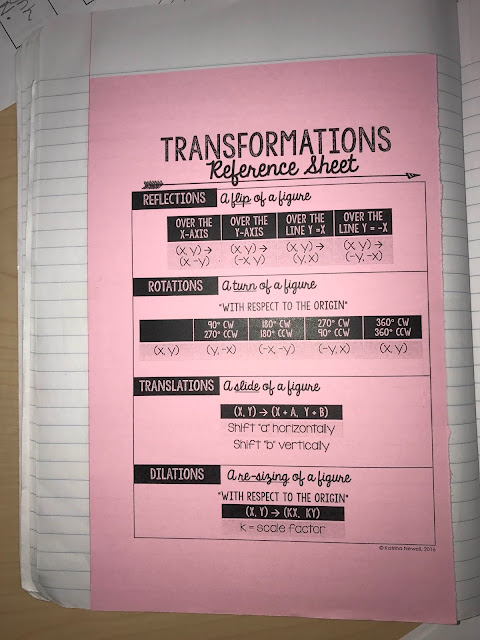 TRANSFORMATIONS
Reference Sheet
REFLECTIONS A flip of a figure
OVER THE X-AXIS OVER THE Y-AXIS OVER THE LINE Y =X OVER THE LINE Y = -X
(x, y) → (x, y) → (x, y) → (x, y) →
(x, -y) (-x, y) (y, x) (-y, -x)
ROTATIONS A turn of a figure
"WITH RESPECT TO THE ORIGIN"
90° CW 180° CW 270° CW 360° CW
270° CCW 180° CCW 90° CCW 360° CCW
(x, y) (y, -x) (-x, -y) (-y, x) (x, y)
TRANSLATIONS A slide of a figure
(X, Y) → (X + A, Y + B)
Shift "a" horizontally
Shift "b" vertically
DILATIONS A re-sizing of a figure
"WITH RESPECT TO THE ORIGIN"
(X, Y) → (KX, KY)
k = scale factor
© Katrina Newell, 2016